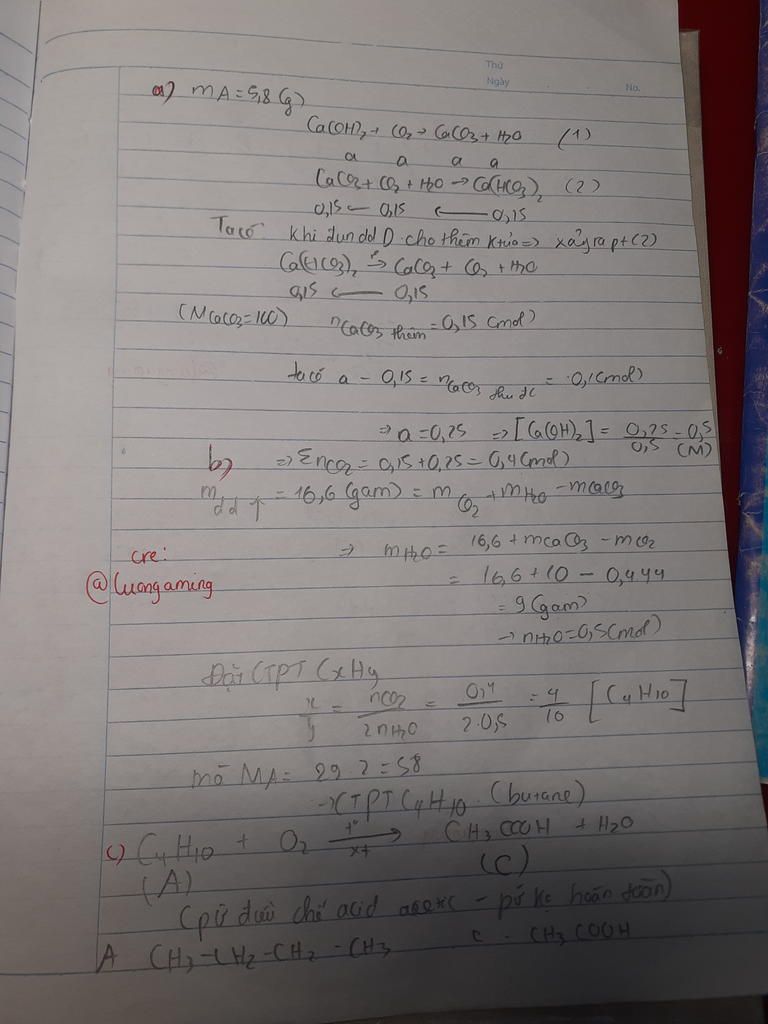 Thứ
Ngày No.
a) mA = 5,8 (g)
Ca(OH)₂ + CO₂ → CaCO₃ + H₂O (1)
a a a a
CaCO₃ + CO₂ + H₂O → Ca(HCO₃)₂ (2)
0,15 ← 0,15 ← 0,15
Ta có khi đun dd D cho thêm ktủa => xảy ra pt (2)
Ca(HCO₃)₂ →t° CaCO₃ + CO₂ + H₂O
0,15 ← 0,15
(MCaCO₃ = 100) nCaCO₃ thêm = 0,15 (mol)
ta có a - 0,15 = nCaCO₃ thu đc = 0,1 (mol)
=> a = 0,25 => [Ca(OH)₂] = 0,25/0,5 = 0,5 (M)
b) => ΣnCO₂ = 0,15 + 0,25 = 0,4 (mol)
m dd ↑ = 16,6 (gam) = mCO₂ + mH₂O - mCaCO₃
=> mH₂O = 16,6 + mCaCO₃ - mCO₂
cre:
= 16,6 + 10 - 0,4.44
@luongaming
= 9 (gam)
→ nH₂O = 0,5 (mol)
Đặt CTPT CxHy
x/y = nCO₂/2nH₂O = 0,4/2.0,5 = 4/10 [C₄H₁₀]
mà MA = 29.2 = 58
→ CTPT C₄H₁₀ (butane)
c) C₄H₁₀ + O₂ →t° xt CH₃COOH + H₂O
(A) (C)
(pứ điều chế acid acetic - pứ ko hoàn toàn)
A CH₃-CH₂-CH₂-CH₃ C. CH₃COOH